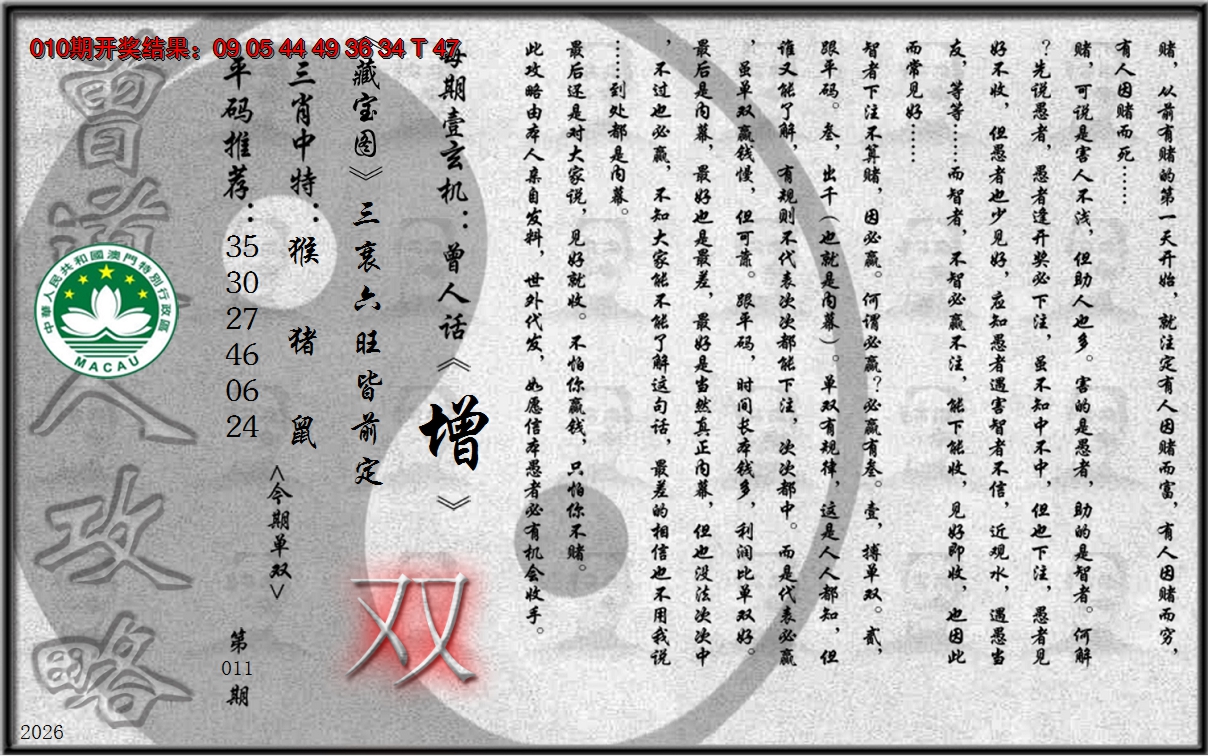 010期开奖结果：09 05 44 49 36 34 T 47
赌，从前有赌的第一天开始，就注定有人因赌而富，有人因赌而穷，
有人因赌而死……
赌，可说是害人不浅，但助人也多。害的是愚者，助的是智者。何解
？先说愚者，愚者逢开奖必下注，虽不知中不中，但也下注，愚者见
好不收，但愚者也少见好，应知愚者遇害智者不信，近观水，遇愚当
友，等等……而智者，不智必赢不注，能下能收，见好即收，也因此
而常见好……
智者下注不算赌，因必赢。何谓必赢？必赢有叁。壹，搏单双。贰，
跟平码。叁，出千（也就是内幕）。单双有规律，这是人人都知，但
谁又能了解，有规则不代表次次都能下注，次次都中。而是代表必赢
，虽单双赢钱慢，但可靠。跟平码，时间长本钱多，利润比单双好。
最后是内幕，最好也是最差，最好是当然真正内幕，但也没法次次中
，不过也必赢，不知大家能不能了解这句话，最差的相信也不用我说
……到处都是内幕。
最后还是对大家说，见好就收。不怕你赢钱，只怕你不赌。
此攻略由本人亲自发料，世外代发，如愿信本愚者必有机会收手。
每期壹玄机：曾人话《增》
《藏宝图》三衰六旺皆前定
双
三肖中特：猴 猪 鼠
<今期单双>
平码推荐：
35
30
27
46
06
24
第
011
期
曾道人攻略
中華人民共和國澳門特別行政區
MACAU
2026